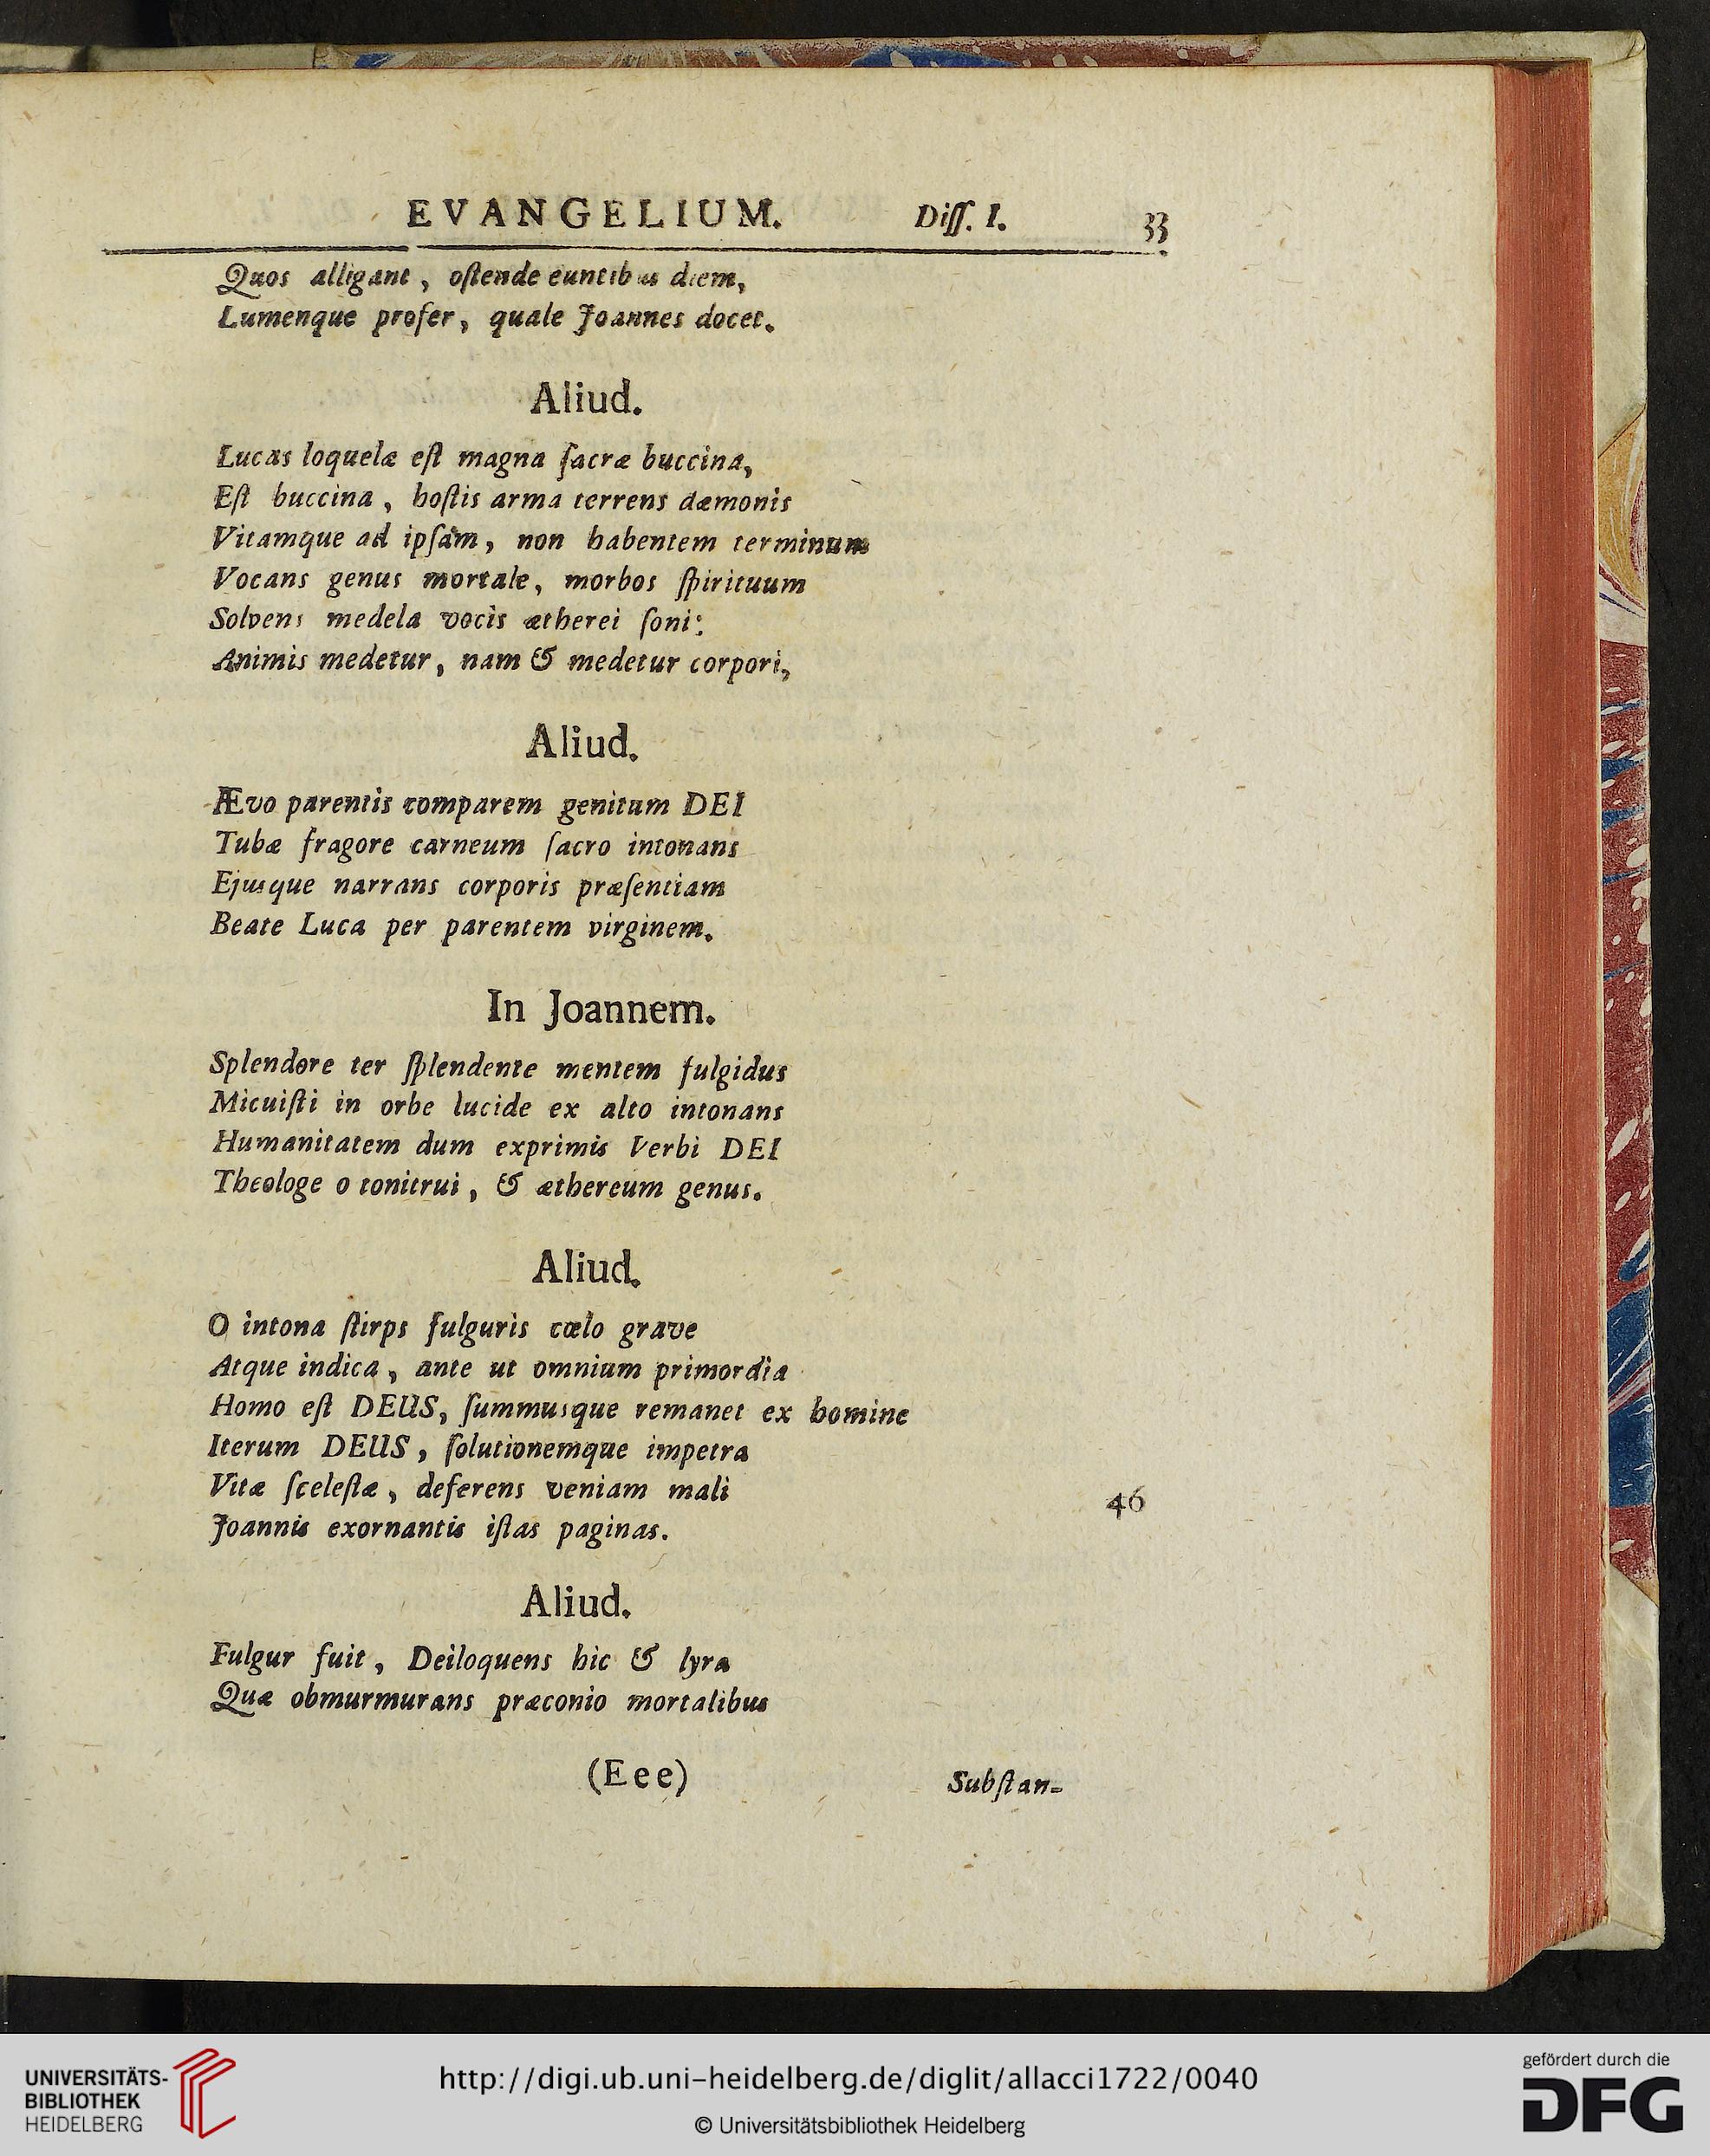 EVANGELIUM. Diſſ. I. 33
Quos alligant, oſtende euntibus diem,
Lumenque profer, quale Joannes docet.
Aliud.
Lucas loquelæ eſt magna ſacræ buccina,
Eſt buccina, hoſtis arma terrens dæmonis
Vitamque ad ipſam, non habentem terminum
Vocans genus mortale, morbos ſpirituum
Solvens medela vocis ætherei ſoni:
Animis medetur, nam & medetur corpori,
Aliud.
Ævo parentis comparem genitum DEI
Tubæ fragore carneum ſacro intonans
Ejusque narrans corporis præſentiam
Beate Luca per parentem virginem.
In Joannem.
Splendore ter ſplendente mentem fulgidus
Micuiſti in orbe lucide ex alto intonans
Humanitatem dum exprimis Verbi DEI
Theologe o tonitrui, & æthereum genus.
Aliud.
O intona ſtirps fulguris cœlo grave
Atque indica, ante ut omnium primordia
Homo eſt DEUS, ſummusque remanet ex homine
Iterum DEUS, ſolutionemque impetra
Vitæ ſceleſtæ, deferens veniam mali
46
Joannis exornantis iſtas paginas.
Aliud.
Fulgur fuit, Deiloquens hic & lyra
Quæ obmurmurans præconio mortalibus
(Eee) Subſtan-
UNIVERSITÄTS-
BIBLIOTHEK
HEIDELBERG
http://digi.ub.uni-heidelberg.de/diglit/allacci1722/0040
© Universitätsbibliothek Heidelberg
gefördert durch die
DFG